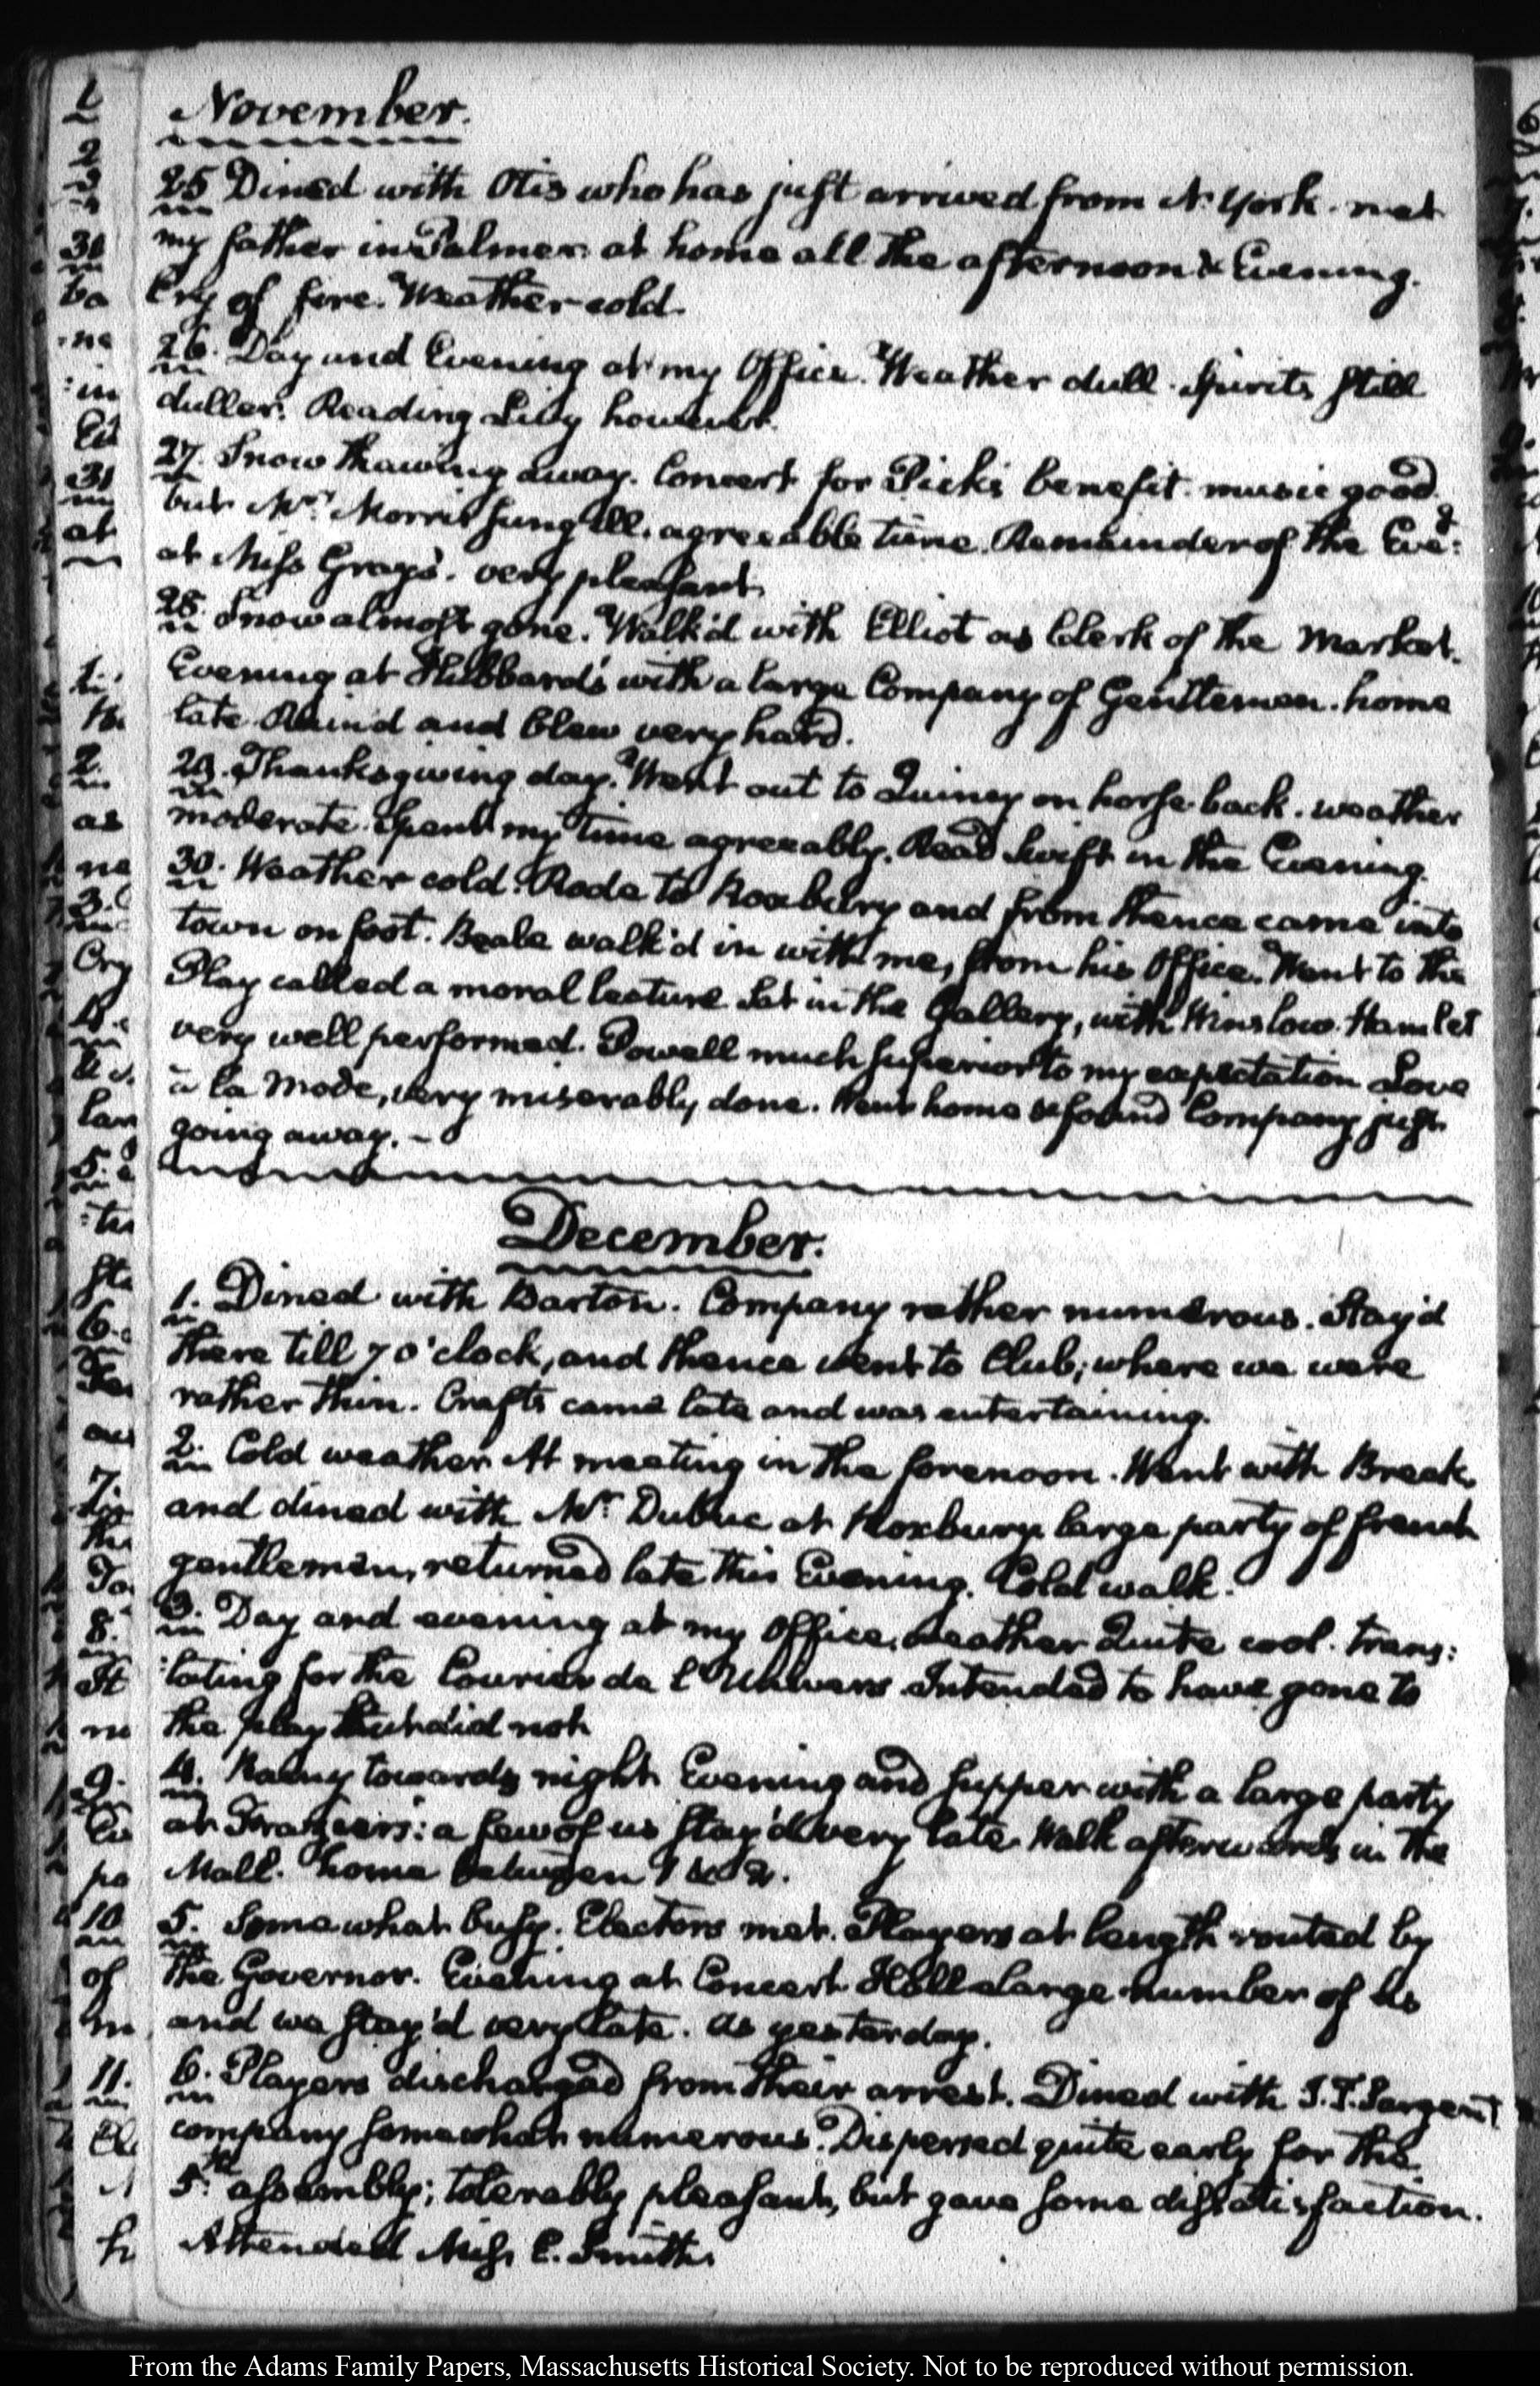 November.
25 Dined with Otis who has just arrived from N. York. met
my father in Palmer. at home all the afternoon & Evening.
Cry of fire. Weather cold.
26. Day and Evening at my Office. Weather dull. Spirits still
duller. Reading Livy however.
27. Snow thawing away. Concert for Pick's benefit. music good
but Mrs. Morris sung ill. agreeable time. Remainder of the Eveg:
at Miss Gray's. very pleasant.
28. Snow almost gone. Walk'd with Elliot as Clerk of the Market.
Evening at Hubbard's with a large Company of Gentlemen. home
late. Rain'd and blew very hard.
29. Thanksgiving day. Went out to Quincy on horse back. weather
moderate. Spent my time agreeably. Read Swift in the Evening.
30. Weather cold. Rode to Roxbury and from thence came into
town on foot. Beale walk'd in with me, from his Office. Went to the
Play called a moral lecture Sat in the Gallery, with Winslow. Hamlet
very well performed. Powell much superior to my expectation Love
à la mode, very miserably done. Went home & found Company just
going away. –
December.
1. Dined with Barton. Company rather numerous. Stay'd
there till 7 o'clock, and thence went to Club; where we were
rather thin. Crafts came late and was entertaining.
2. Cold weather. At meeting in the forenoon. Went with Breck,
and dined with Mr. Dubuc at Roxbury. large party of french
gentlemen, returned late this Evening. Cold walk.
3. Day and evening at my Office. weather Quite cool. trans:
:lating for the Courier de l'Univers. Intended to have gone to
the play but did not.
4. Rainy towards night. Evening and supper with a large party
at : a few of us stay'd very late. Walk afterwards in the
Mall. home between 1 & 2.
5. Somewhat busy. Electors met. Players at length routed by
the Governor. Evening at Concert Hall a large number of us
and we stay'd very late. as yesterday.
6. Players discharged from their arrest. Dined with J. T. Sargent
company somewhat numerous. Dispersed quite early for the
5th. assembly; tolerably pleasant, but gave some dissatisfaction.
Attended Miss E. Smith.
From the Adams Family Papers, Massachusetts Historical Society. Not to be reproduced without permission.